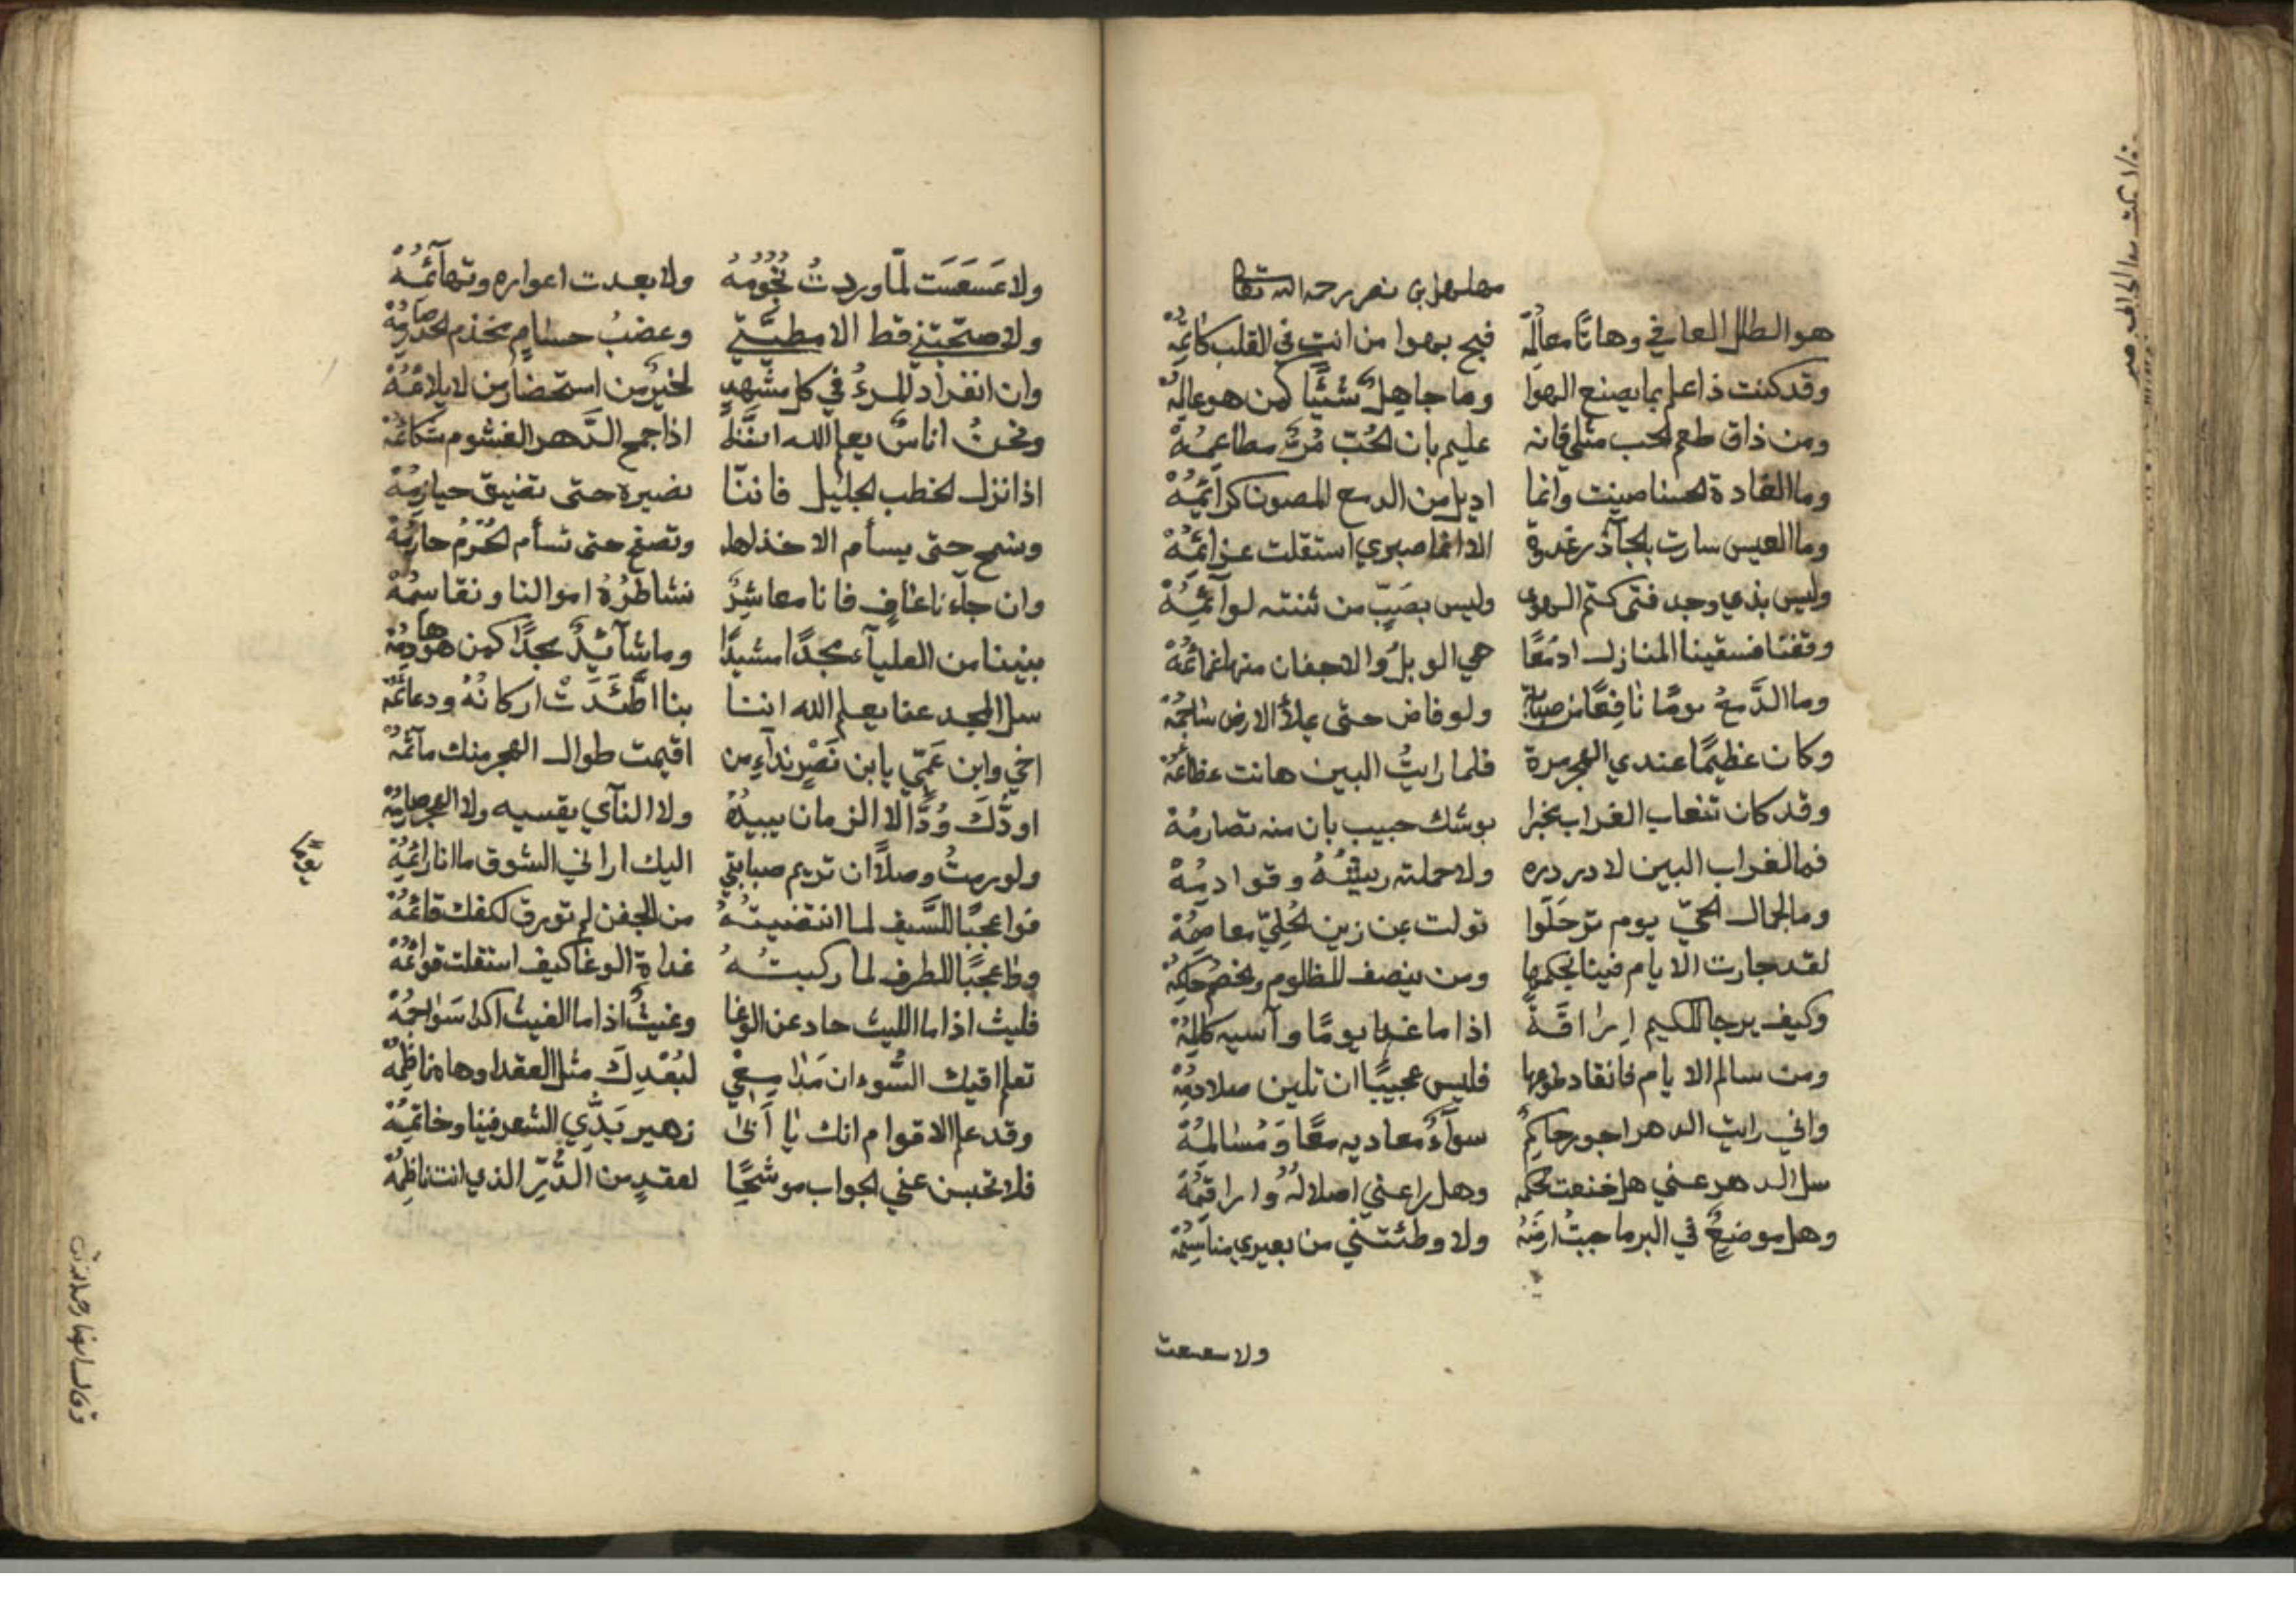 مهلهل بن نصر رحمه الله تعالى
هو الطلل العافي وهاتا معالمه فبح بهوا من انت في القلب كاتمه
وقد كنت ذا علم بما يصنع الهوا وما جاهلٌ شئيًا كمن هو عالمه
ومن ذاق طعم الحب مثلي فانه عليم بان الحُبّ مُرّة مطاعمهُ
وما الغادة الحسنا صينت وانما اديل من الدمع المصون كرآئمُهْ
وما العيس سارت بالجآذر غدوة الا انما صبري استقلت عزائمُهْ
وليس بذي وجد فتى كتم الهوى وليس بصَبّ من ثنته لوآئمُهْ
وقفنا فسقينا المنازل ادمُعًا همي الوبلُ والاجفان منها غمائمُهْ
وما الدَّمعُ يومًا نافِعًا من صبابة ولو فاض حتى يملأ الارض ساجمُهْ
وكان عظيمًا عندي الهجر مرة فلما رايتُ البين هانت عظائمُهْ
وقد كان تنعاب الغراب مخبرا بوشك حبيب بان منه تصارمُهْ
فما لغراب البين لا در دره ولا حملته ريشُهُ وقوادمُهْ
وما لجمال الحيّ يوم ترحَلَوا تولت بمن زين الحُلِيّ معاصمُهْ
لقد جارت الايام فينا بحكمها ومن ينصف المظلوم والخصمُ حاكمُهْ
وكيف يرجا للكيم اِراقَةً اذا ما غدا يومًا وآسيه كالمُهْ
ومن سالم الايام فانقاد طوعها فليس عجيبًا ان تلين صلادمُهْ
واني رايت الدهر اجور حاكمٍ سوآءٌ معاديه معًا وَمُسالمُهْ
سل الدهر عني هل خنعت لحكمه وهل راعني اصلالهُ واراقمُهْ
وهل موضعٌ في البر ما جبتُ ارضَهُ ولا وطئتني من بعيري مناسمُهْ
ولا سعسعت
ولا عَسعَسَت لمّا وردتُ نُجُومُهُ ولا بعدت اعواره وتهآئمُهْ
ولا صحبتني قط الا مطيَّتي وعضبُ حسامٍ مخذم الحدّ صارمُهْ
وان انفراد المرءُ في كل مشهدٍ لخيرٌ من استحضار من لا يلائمُهْ
ونحنُ اناسٌ يعلم الله اننَّا اذا جمح الدَّهر الغشوم شكائمُهْ
اذا نزل الخطب الجليل فاننّا نضيره حتى تضيق حيازمُهْ
ونسمح حتى يسأم الاخذ لها ونصفح حتى تسأم الجُرّمُ جارمُهْ
وان جآءنا عافٍ فانا معاشِرٌ نشاطرُهُ اموالنا ونقاسمُهْ
بنينا من العليآء مجدًا مشيدًا وما شآئدٌ مجدًا كمن هو هادمُهْ
سل المجد عنا يعلم الله اننا بنا اطَّئَدَتْ اركانُهُ ودعائمُهْ
اخي وابن عَمّي يا ابن نَصْرٍ نداء من اقيمت طوال الهجر منك مآتمُهْ
اودّكَ وُدًّا لا الزمان يبيدهُ ولا النآي يقسيه ولا الهجر صارمُهْ
ولو رمتُ وصلًا ان تريم صبابتي اليك اراني الشوق ما انا رائمُهْ
فوا عجبًا للسَّيف لما انتضيتهُ من الجفن لم تورق لكفك قائمُهْ
ووا عجبًا للطرف لما ركبتُهُ غداة الوغا كيف استقلت قوائمُهْ
فليث اذا ما الليث حاد عن الوغا وغيثٌ اذا ما الغيث اكدا سَواجمُهْ
تعلم اقيك السُّوء ان مَدا معي لبُعْدِكَ مثل العقد اوهاه ناظِمُهْ
وقد علم الاقوام انك يا اخي زهير بَدّي الشعر فينا وخاتمُهْ
فلا تحبسن عني الجواب موشحًا لعقدٍ من الدُّرّ الذي انت ناظِمُهْ